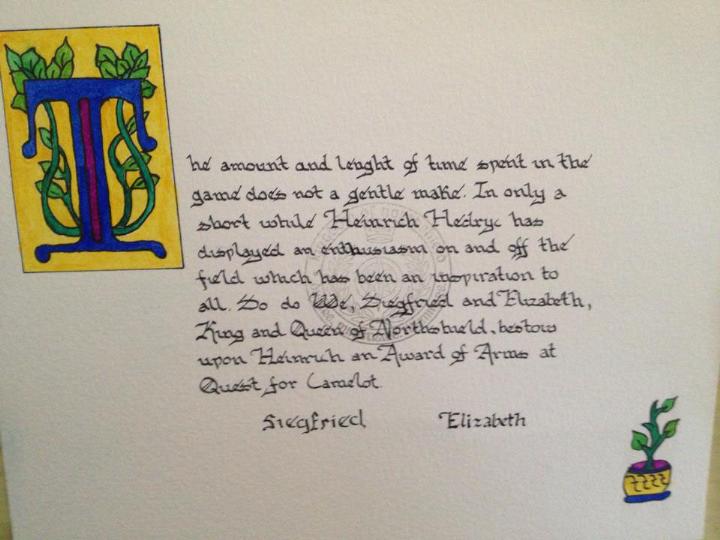 The amount and lenght of time spent in the
game does not a gentle make. In only a
short while Heinrich Hedryc has
displayed an enthusiasm on and off the
field which has been an inspiration to
all. So do We, Siegfried and Elizabeth,
King and Queen of Northshield, bestow
upon Heinrich an Award of Arms at
Quest for Camelot.
Siegfried Elizabeth